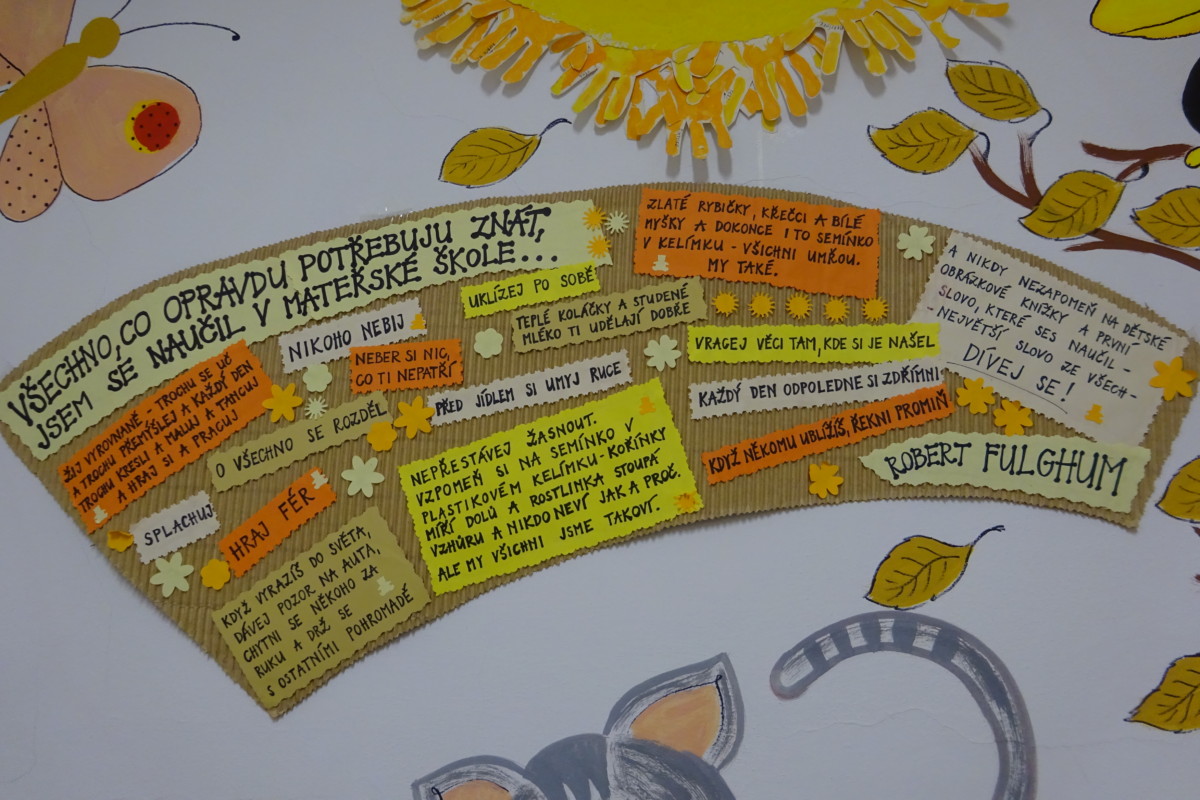 VŠECHNO, CO OPRAVDU POTŘEBUJU ZNÁT,
JSEM SE NAUČIL V MATEŘSKÉ ŠKOLE...
ŽIJ VYROVNANĚ - TROCHU SE UČ
A TROCHU PŘEMÝŠLEJ A KAŽDÝ DEN
TROCHU KRESLI A MALUJ A TANCUJ
A HRAJ SI A PRACUJ
NIKOHO NEBIJ
NEBER SI NIC,
CO TI NEPATŘÍ
O VŠECHNO SE ROZDĚL
SPLACHUJ
HRAJ FÉR
KDYŽ VYRAZÍŠ DO SVĚTA,
DÁVEJ POZOR NA AUTA,
CHYTNI SE NĚKOHO ZA
RUKU A DRŽ SE
S OSTATNÍMI POHROMADĚ
UKLÍZEJ PO SOBĚ
TEPLÉ KOLÁČKY A STUDENÉ
MLÉKO TI UDĚLAJÍ DOBŘE
PŘED JÍDLEM SI UMYJ RUCE
NEPŘESTÁVEJ ŽASNOUT.
VZPOMEŇ SI NA SEMÍNKO V
PLASTIKOVÉM KELÍMKU - KOŘÍNKY
MÍŘÍ DOLŮ A ROSTLINKA STOUPÁ
VZHŮRU A NIKDO NEVÍ JAK A PROČ.
ALE MY VŠICHNI JSME TAKOVÍ.
ZLATÉ RYBIČKY, KŘEČCI A BÍLÉ
MYŠKY A DOKONCE I TO SEMÍNKO
V KELÍMKU - VŠICHNI UMŘOU.
MY TAKÉ.
VRACEJ VĚCI TAM, KDE SI JE NAŠEL
KAŽDÝ DEN ODPOLEDNE SI ZDŘÍMNI
KDYŽ NĚKOMU UBLÍŽÍŠ, ŘEKNI PROMIŇ
A NIKDY NEZAPOMEŇ NA DĚTSKÉ
OBRÁZKOVÉ KNÍŽKY A PRVNÍ
SLOVO, KTERÉ SES NAUČIL -
- NEJVĚTŠÍ SLOVO ZE VŠECH -
DÍVEJ SE!
ROBERT FULGHUM